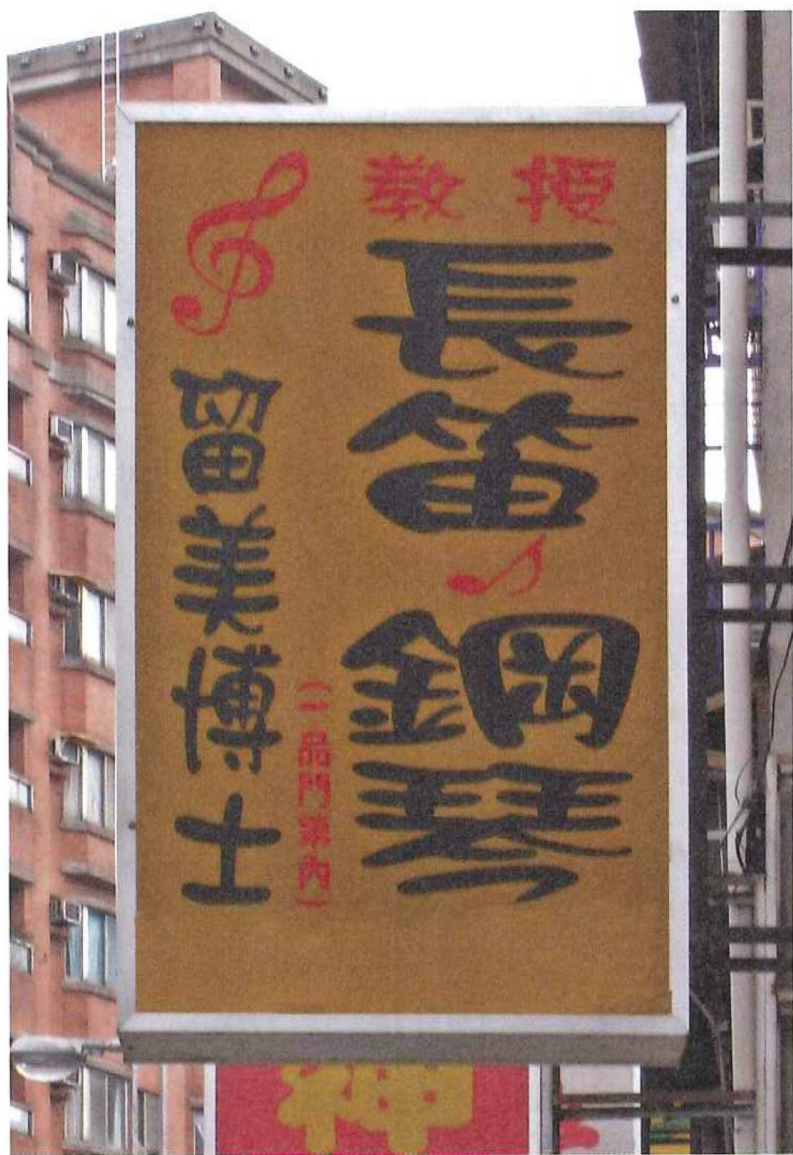 教授
長笛
鋼琴
(一品門牽內)
留美博士
神